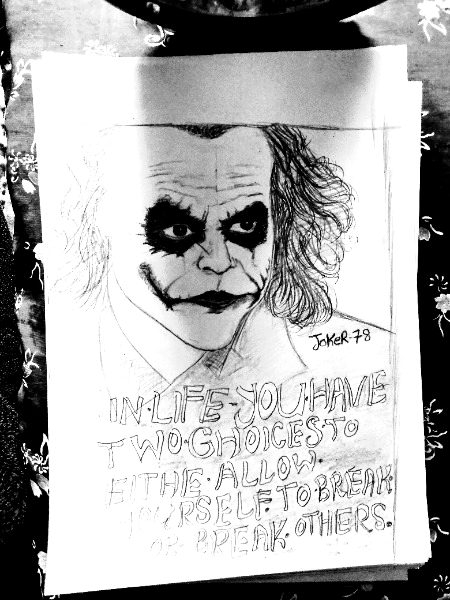 JOKER-78
IN·LIFE·YOU·HAVE
TWO·CHOICES·TO
EITHE·ALLOW·
YOURSELF·TO·BREAK
OR·BREAK·OTHERS.